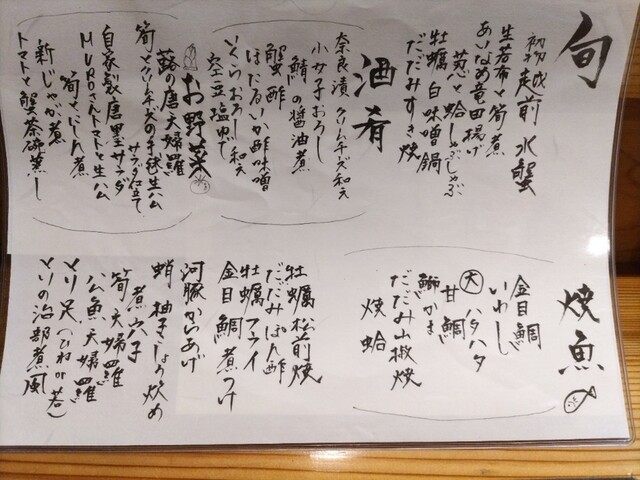 旬
初物 越前 水蟹
生若布と筍煮
あいなめ竜田揚げ
菊芯と蛤しゃぶしゃぶ
牡蠣白味噌鍋
だだみすき焼
酒肴
奈良漬クリームチーズ和え
小女子おろし
鯖の醤油煮
蟹酢
ほたるいか酢味噌
いくらおろし和え
空豆塩ゆで
お野菜
蕗の唐天婦羅
筍とクリームチーズの手毬生ハム
サラダ仕立て
自家製唐墨サラダ
MUROさんトマトと生ハム
筍とにしん煮
新じゃが煮
トマトと蟹茶碗蒸し
焼魚
金目鯛
いわし
大 ハタハタ
甘鯛
鰤かま
だだみ山椒焼
焼蛤
牡蠣松前焼
だだみぽん酢
牡蠣フライ
金目鯛煮つけ
河豚からあげ
蛸 柚子こしょう炒め
煮穴子
筍天婦羅
ハム魚天婦羅
とり足(ひね or 若)
とりの治部煮風